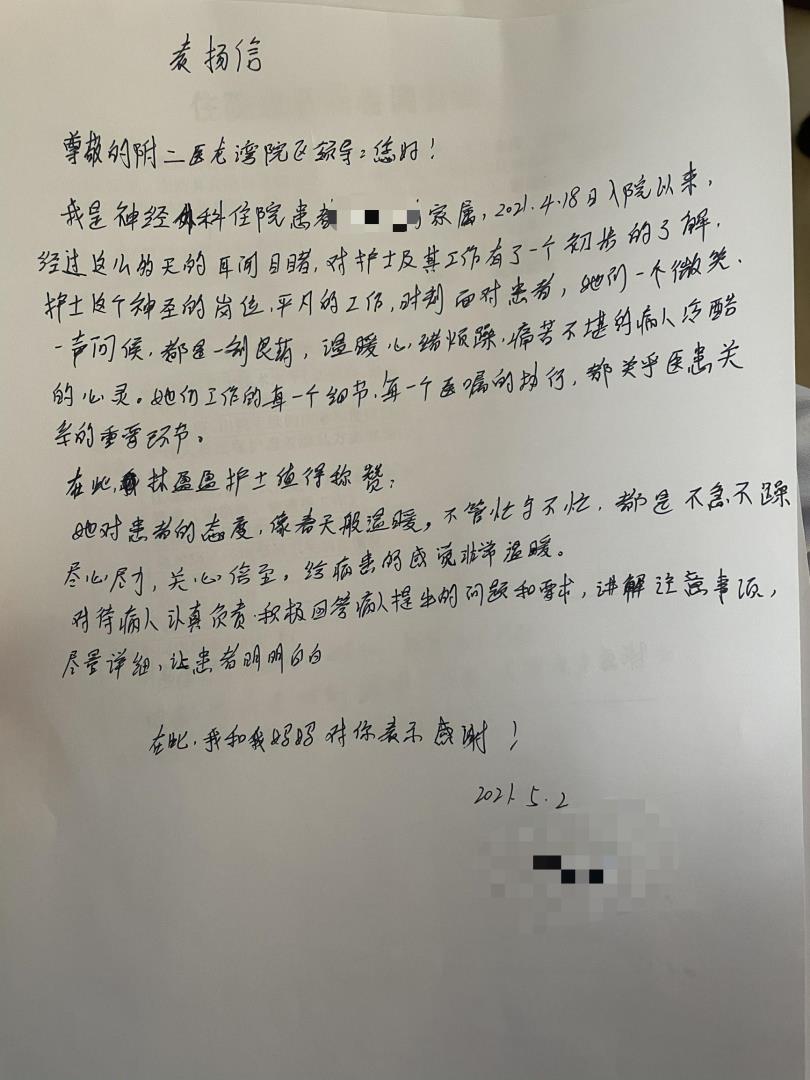 表扬信
尊敬的附二医龙湾院区领导：您好！
我是神经外科住院患者 家属，2021.4.18日入院以来，
经过这么多天的耳闻目睹，对护士及其工作有了一个初步的了解.
护士这个神圣的岗位.平凡的工作,时刻面对患者，她们一个微笑.
一声问候，都是一剂良药，温暖心绪烦躁,痛苦不堪的病人冷酷
的心灵。她们工作的每一个细节.每一个医嘱的执行，都关乎医患关
系的重要环节。
在此, 林盈盈护士值得称赞：
她对患者的态度，像春天般温暖。不管忙与不忙，都是不急不躁
尽心尽力，关心倍至，给病患的感觉非常温暖。
对待病人认真负责.积极回答病人提出的问题和要求，讲解注意事项，
尽量详细，让患者明明白白
在此，我和我妈妈对你表示感谢！
2021.5.2